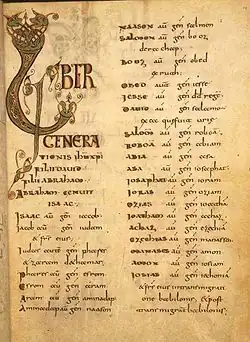 LIBER
GENERA
TIONIS IHU XPI
FILII DAVID
FILII ABRAHAM
ABRAHAM GENUIT
ISAAC
ISAAC aũ gen̄ iacob
Iacob aũ gen̄ iudam
& fr̄s eius
Iudas aut̄ gen̄ phares
& zaram de thamar
Phares aũ gen̄ esrom
Esrom aũ gen̄ aram
Aram aũ gen̄ aminadab
Aminadab aũ gen̄ naason
NAASON aũ gen̄ salmon
SALMON aũ gen̄ booz
de rachab
BOOZ aũ gen̄ obed
ex ruth
OBED aũ gen̄ iesse
IESSE aũ gen̄ dd rege
DAVID aũ gen̄ salomon
ex ea que fuit urie
SALOMON aũ gen̄ roboa
ROBOA aũ gen̄ abiam
ABIA aũ gen̄ asa
ASA aũ gen̄ iosaphat
IOSAPHAT aũ gen̄ ioram
IORAS aũ gen̄ oziam
OZIAS aũ gen̄ ioatha
IOATHAM aũ gen̄ achaz
ACHAZ aũ gen̄ ezechia
EZECHIAS aũ gen̄ manassen
MANASSES aũ gen̄ amon
AMON aũ gen̄ iosiam
IOSIAS aũ gen̄ iechonia
& fr̄s eius in transmigrati
one babilonis & post
transmigrat̄ babilonis